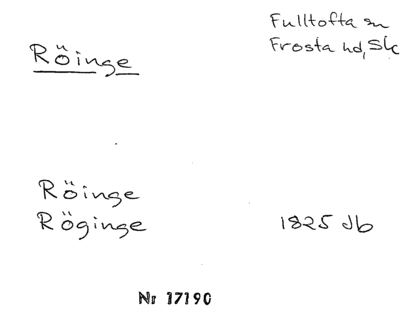 Röinge
Fulltofta sn
Frosta hd, Sk
Röinge
Röginge 1825 Jb
Nr 17190